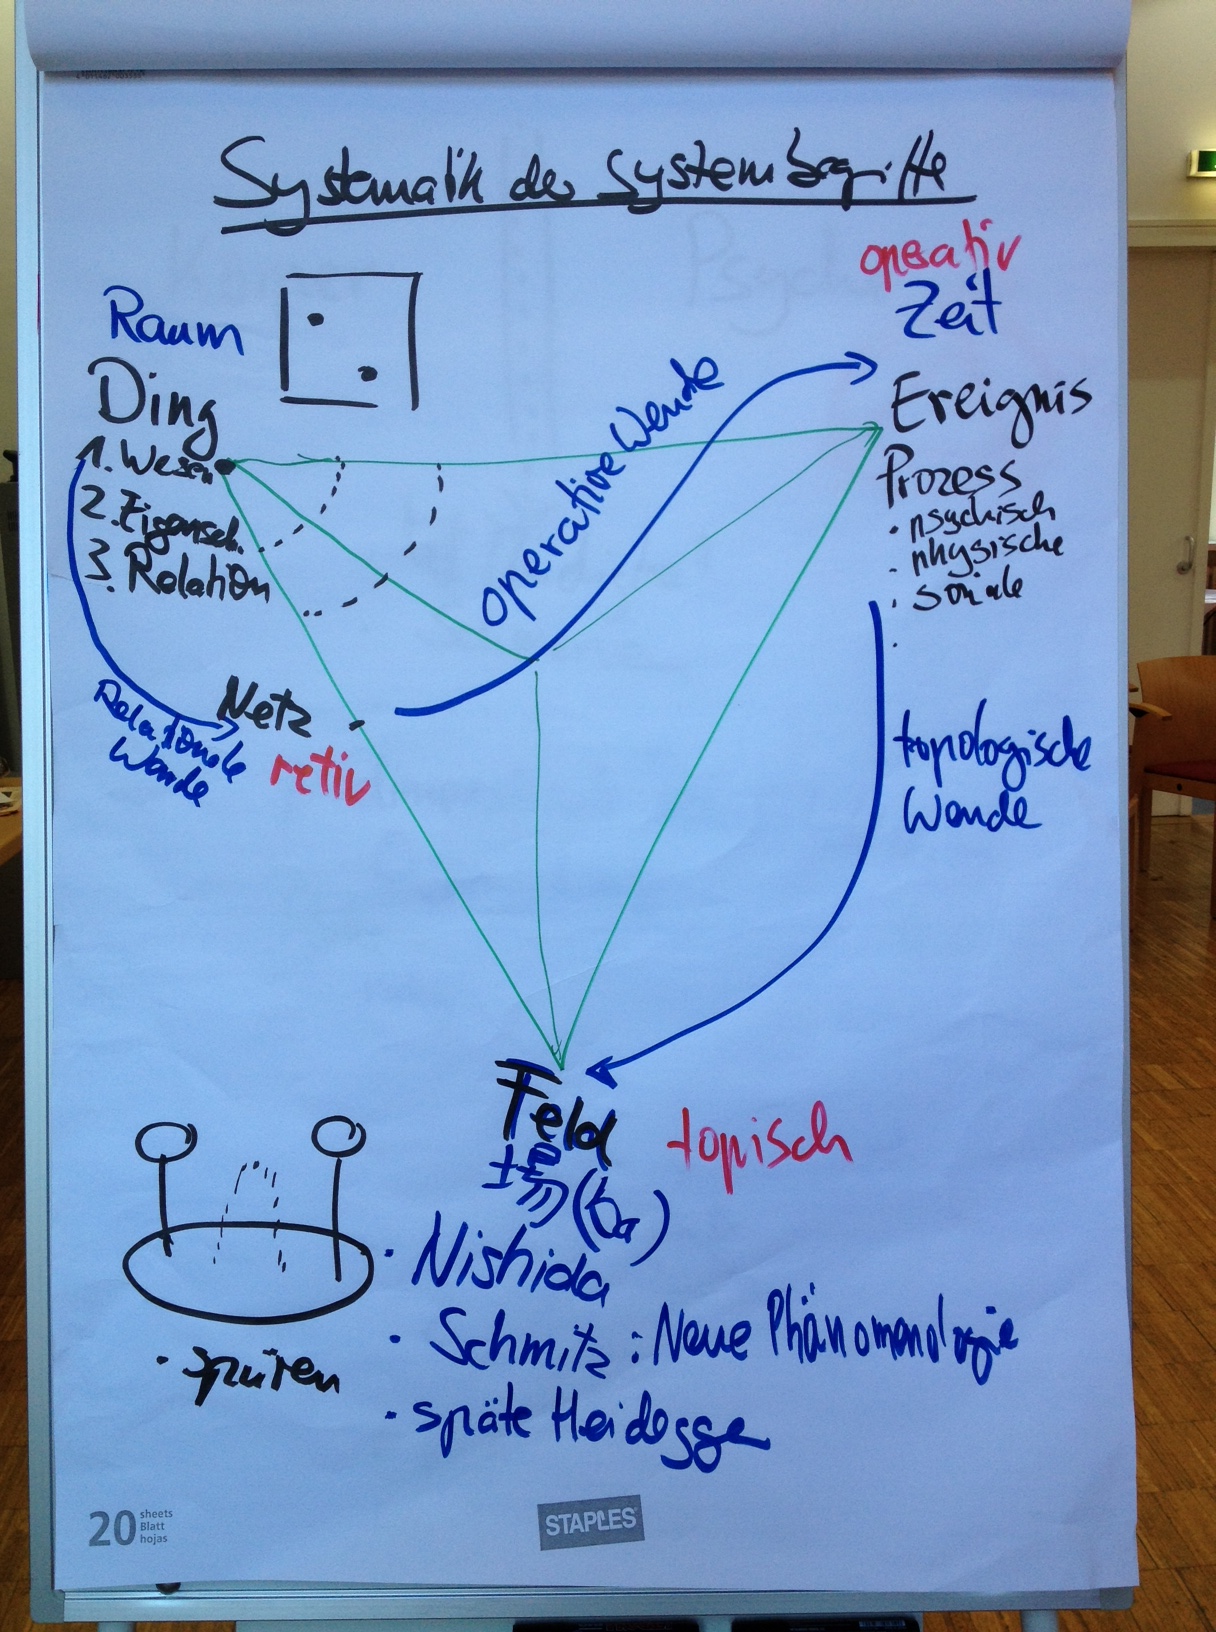 Systematik der Systembegriffe
operativ
Zeit
Raum
Ding
1. Wesen
2. Eigensch.
3. Relation
Operative Wende
Ereignis
Prozess
· psychisch
· physische
· soziale
·
Netz
retiv
Relationale
Wende
topologische
Wende
Feld
topisch
場 (ba)
· Nishida
· Schmitz: Neue Phänomenologie
· späte Heidegger
· spüren
20 sheets
Blatt
hojas
STAPLES